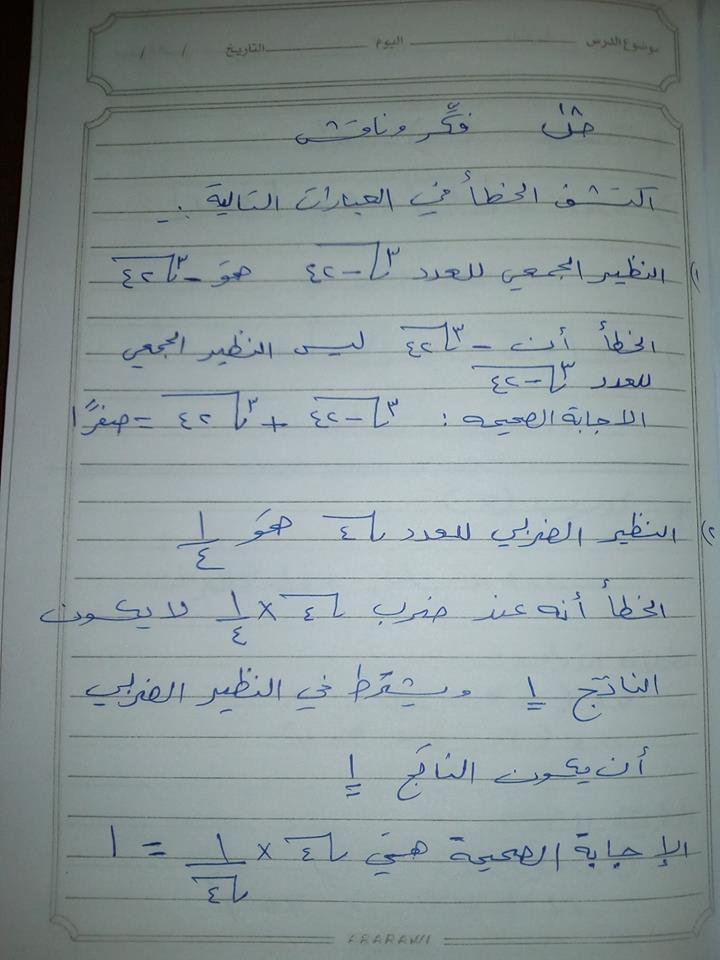 موضوع الدرس اليوم التاريخ / /
حل فكّر وناقش
اكتشف الخطأ في العبارات التالية :-
١) النظير الجمعي للعدد ∛-٤٢ هوَ -∛٤٢
الخطأ أن -∛٤٢ ليس النظير الجمعي
للعدد ∛-٤٢
الاجابة الصحيحه : ∛-٤٢ + ∛٤٢ = صفرًا
٢) النظير الضربي للعدد √٤ هوَ ١/٤
الخطأ أنه عند ضرب √٤ × ١/٤ لا يكون
الناتج ١ ويشترط في النظير الضربي
أن يكون الناتج ١
الإجابة الصحيحة هيَ √٤ × ١/√٤ = ١